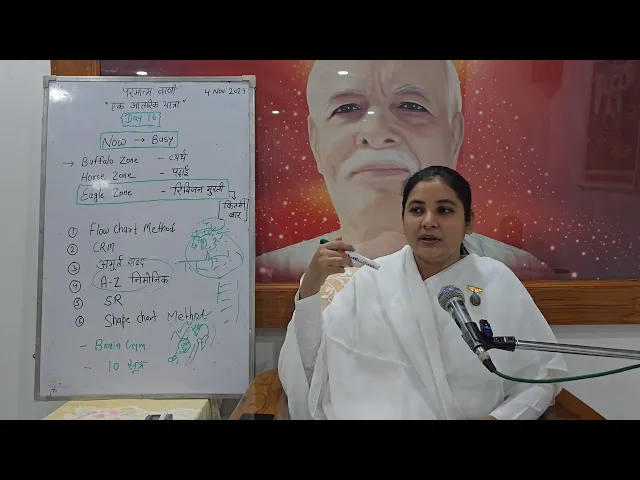 परमात्म वाणी
4 Nov 2024
"एक आंतरिक यात्रा"
Day 16
Now → Busy
→ Buffalo Zone - व्यर्थ
Horse Zone - पढ़ाई
Eagle Zone - रिविजन मुरली
कितनी बार
① Flow Chart Method
② CRM
③ अमूर्त शब्द
④ A-Z निमोनिक
⑤ SR
⑥ Shape Chart Method
- Brain Gym